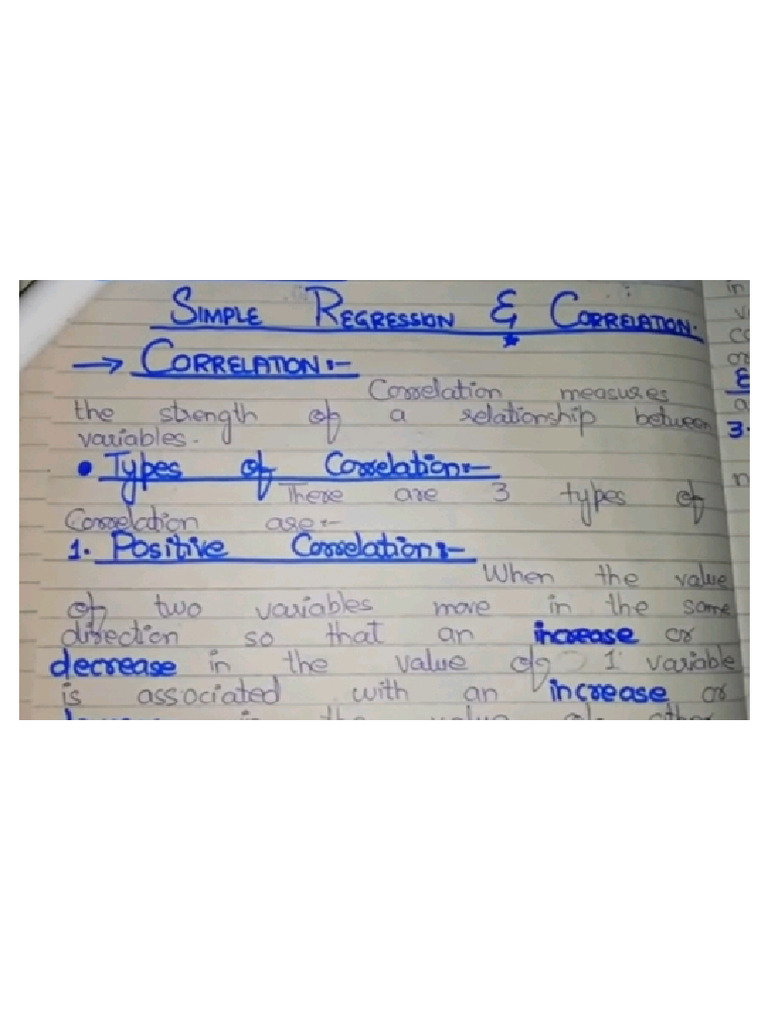 SIMPLE REGRESSION & CORRELATION.
→ CORRELATION:-
Correlation measures
the strength of a relationship between
variables.
• Types of Correlation:-
There are 3 types of
Correlation are:-
1. Positive Correlation:-
When the value
of two variables move in the same
direction so that an increase or
decrease in the value of 1 variable
is associated with an increase or
in the value of other
in
3.